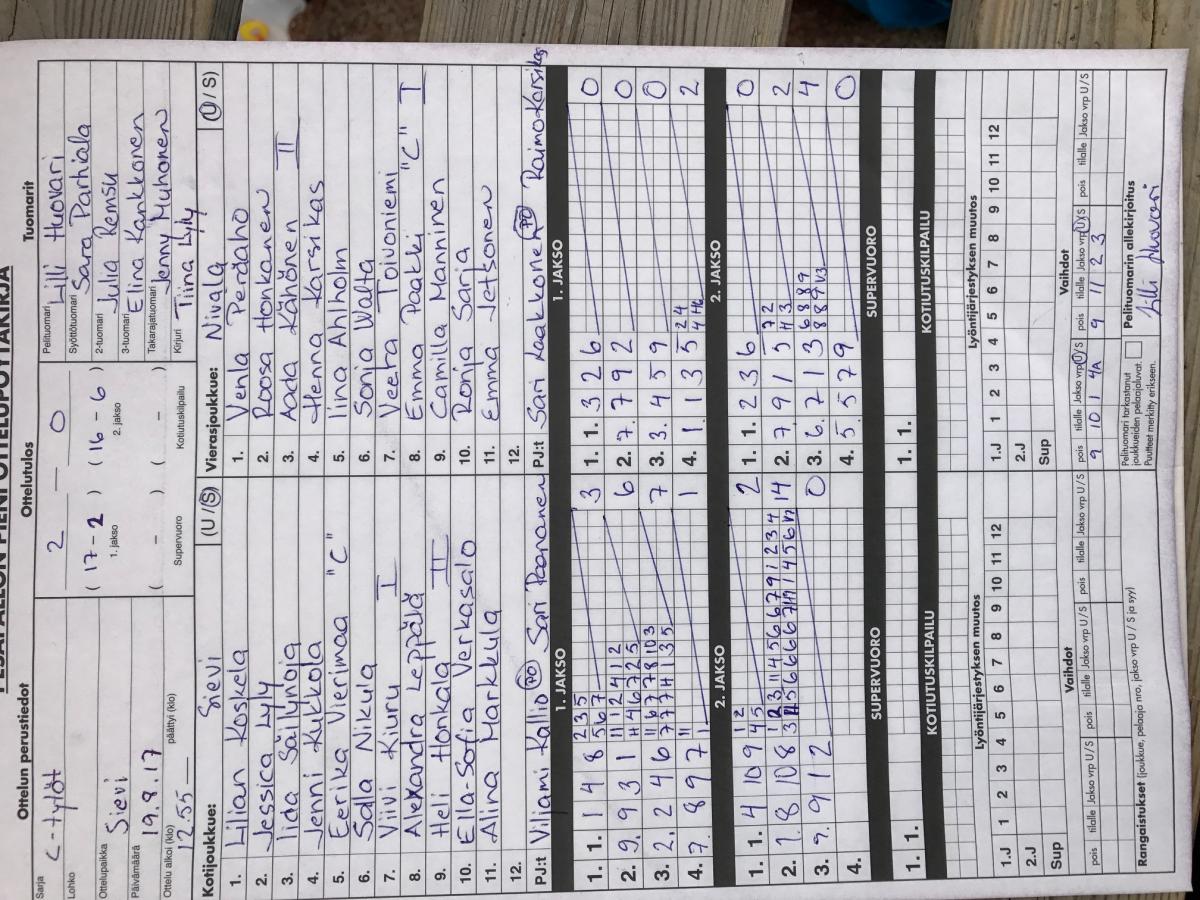 PESÄPALLON PIENI OTTELUPÖYTÄKIRJA
Ottelun perustiedot
Sarja C-tytöt
Lohko
Ottelupaikka Sievi
Päivämäärä 19.8.17
Ottelu alkoi (klo) 12.55 päättyi (klo)
Ottelutulos
2 — 0
( 17 - 2 ) ( 16 - 6 )
1. jakso 2. jakso
( - ) ( - )
Supervuoro Kotiutuskilpailu
Tuomarit
Pelituomari Lilli Huovari
Syöttötuomari Sara Parhiala
2-tuomari Julia Remsu
3-tuomari Elina Kankkonen
Takarajatuomari Jenny Muhonen
Kirjuri Tiina Lyly
Kotijoukkue: Sievi (U / S)
1. Lilian Koskela
2. Jessica Lyly
3. Iida Säilynoja
4. Jenni Kukkola
5. Eerika Vierimaa "C"
6. Salla Nikula
7. Viivi Kiuru I
8. Alexandra Leppälä
9. Heli Honkala II
10. Ella-Sofia Verkasalo
11. Alina Markkula
12.
PJ:t Viljami Kallio PO Sari Paananen
Vierasjoukkue: Nivala (U / S)
1. Venla Perdaho
2. Roosa Honkanen
3. Aada Kähönen II
4. Henna Karsikas
5. Iina Ahlholm
6. Sonja Walta
7. Veera Toivoniemi
8. Emma Paakki "C" I
9. Camilla Manninen
10. Ronja Sarja
11. Emma Jetsonen
12.
PJ:t Sari Kaakkonen PO Raimo Karsikas
1. JAKSO
1. 1. 1 4 8 2 3 5 3
5 6 7
2. 9. 9 3 1 11 1 2 4 1 2 6
3. 2. 2 4 6 7
4. 7. 8 9 7 1
1. JAKSO
1. 1. 3 2 6 0
2. 7. 7 9 2 0
3. 3. 4 5 9 0
4. 1. 1 3 5 2 4 2
2. JAKSO
1. 1. 4 10 9 1 2 2
4 5
2. 1. 8 10 8 14
3. 9. 9 1 2 0
4.
2. JAKSO
1. 1. 2 3 6 0
2. 7. 9 1 5 7 2 2
4 3
3. 6. 7 1 3 6 8 8 9 4
4. 5. 5 7 9 0
SUPERVUORO
1. 1.
SUPERVUORO
1. 1.
KOTIUTUSKILPAILU
KOTIUTUSKILPAILU
Lyöntijärjestyksen muutos
1.J 1 2 3 4 5 6 7 8 9 10 11 12
2.J
Sup
Lyöntijärjestyksen muutos
1.J 1 2 3 4 5 6 7 8 9 10 11 12
2.J
Sup
Vaihdot
pois tilalle Jakso vrp U / S pois tilalle Jakso vrp U / S pois tilalle Jakso vrp U / S
Vaihdot
pois tilalle Jakso vrp U / S pois tilalle Jakso vrp U / S pois tilalle Jakso vrp U / S
9 10 1 4A 9 11 2 3
Rangaistukset (joukkue, pelaaja nro, jakso vrp U / S ja syy)
Pelituomari tarkastanut
joukkueiden pelaajaluvat.
Puutteet merkitty erikseen.
Pelituomarin allekirjoitus
Lilli Huovari